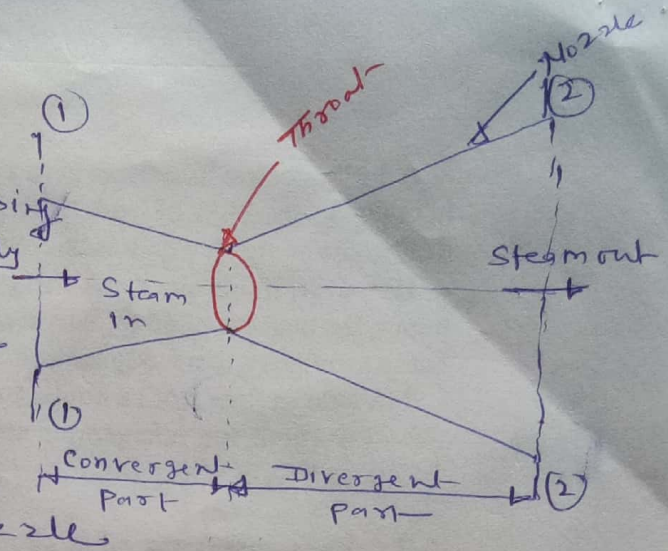 Nozzle
①
②
Throat
Steam out
Stam
In
①
Convergent
Part
Divergent
Part
②